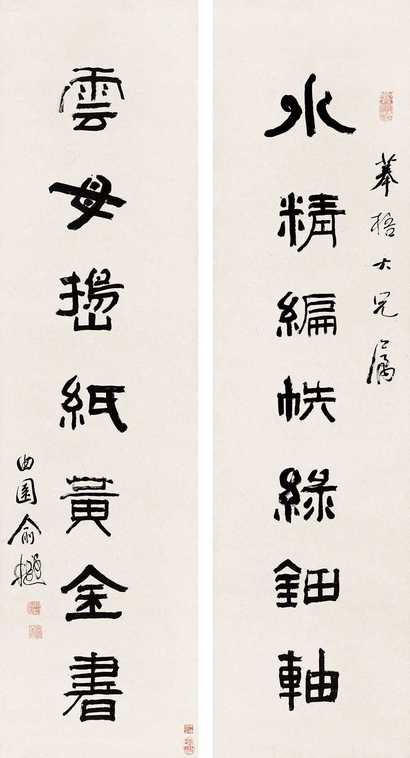 水精編帙綠鈿軸
大兄屬
雲母擣紙黃金書
曲園俞樾